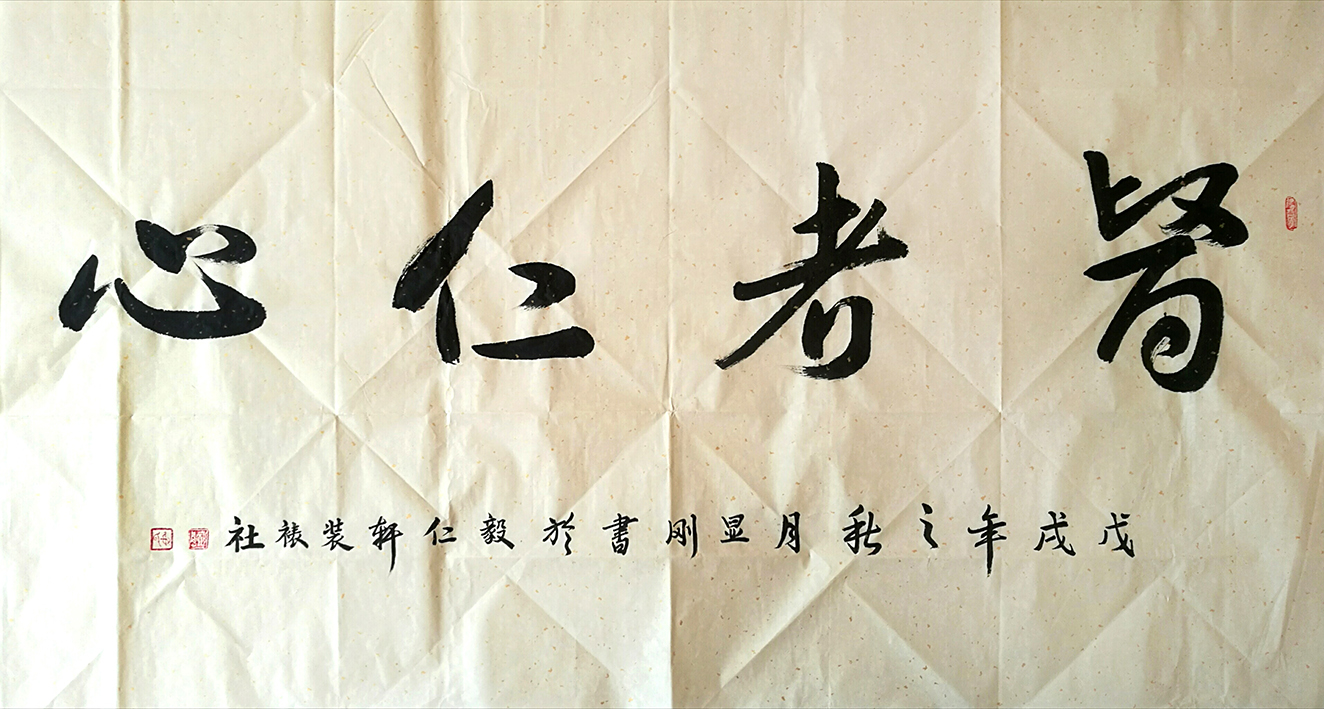 醫者仁心
戊戌年之秋月显刚書於毅仁轩装裱社